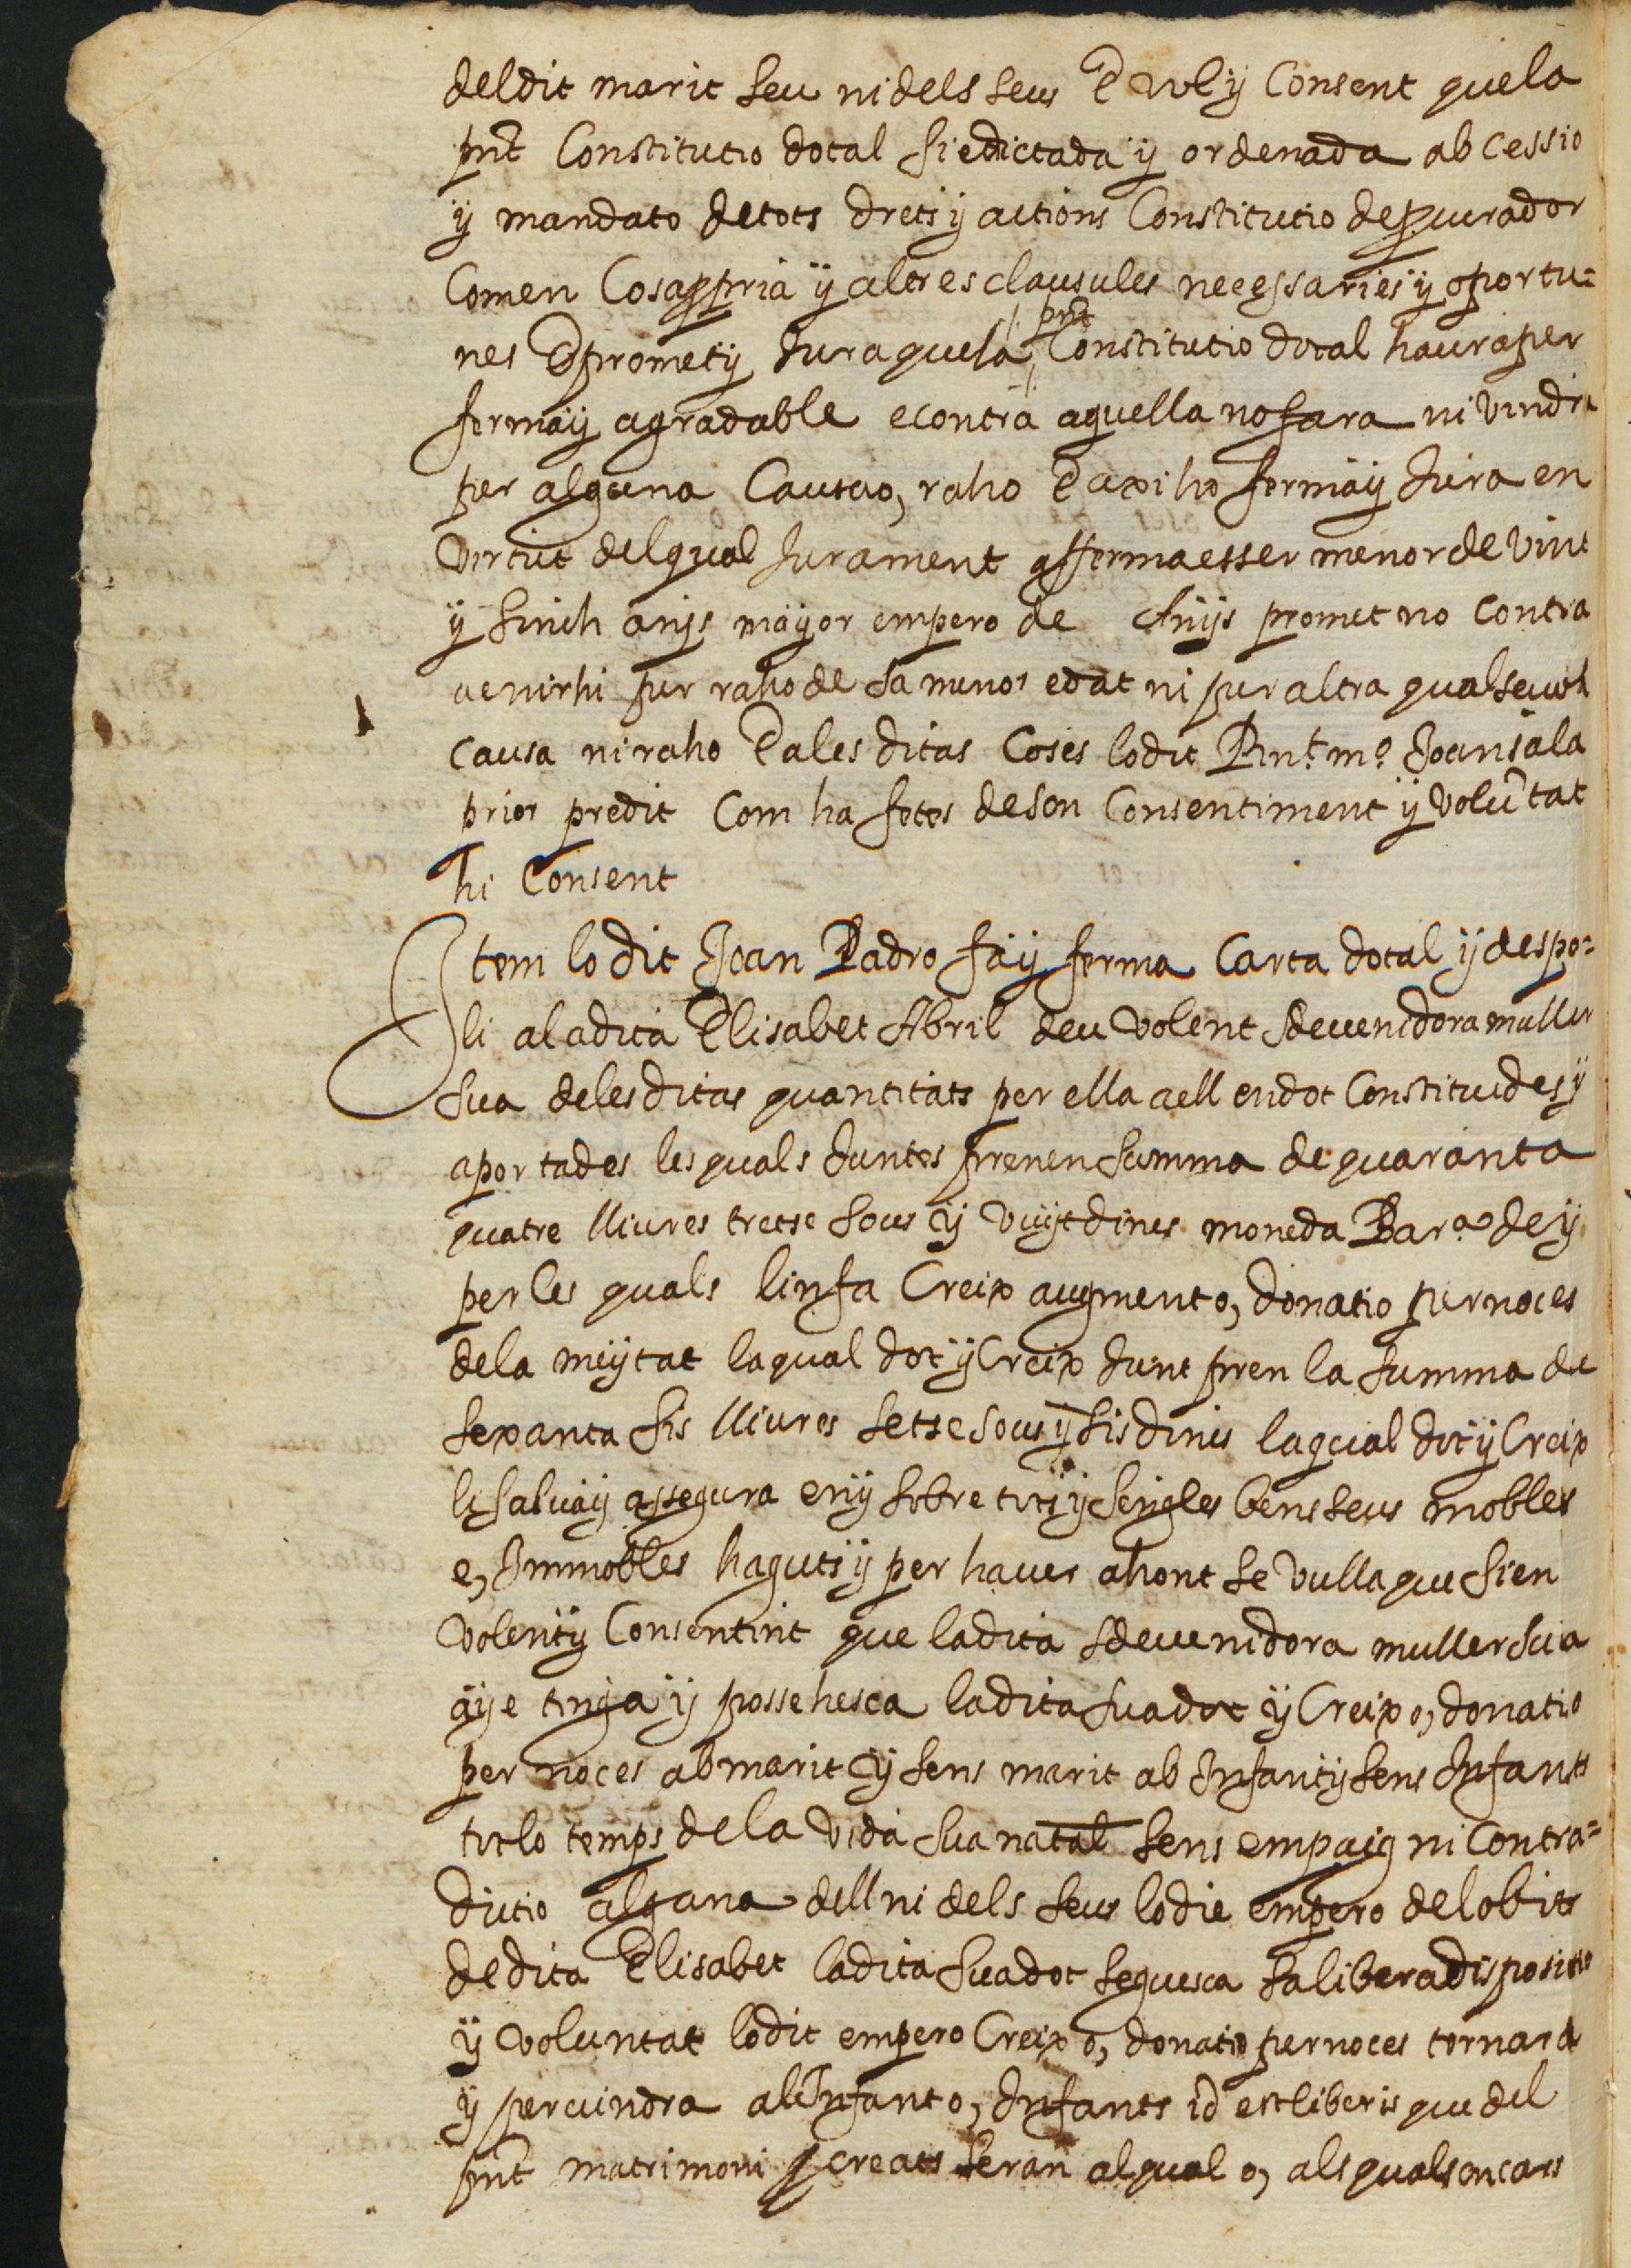 deldit marit seu nidels seus E vol y Consent quela
pnt Constitutio dotal si edictada y ordenada ab cessio
y mandato detots drets y actions Constitutio de pcurador
Comen Cosa ppria y altres clausules necessaries y oportu=
nes E promet y Jura quela pnt Constitutio dotal haura per
ferma y agradable e contra aquella no fara ni vindra
per alguna Causa o, raho E axi ho ferma y Jura en
virtut delqual Jurament afferma esser menor de vint
y sinch anys mayor empero de Anys promet no contra
uenirhi per raho de sa menor edat ni per altra qualseuol
causa ni raho E ales ditas Coses lodit Rnt. mº. Joan sala
prior predit Com ha fetes deson Consentiment y volũtat
hi Consent
Item lo dit Joan Padro fa y ferma Carta dotal y despo=
li aladita Elisabet Abril deu volent sdeuenidora muller
sua delesditas quantitats per ella aell endot Constituides y
aportades lesquals Juntes prenen summa de quaranta
quatre lliures tretse sous y vuyt dines moneda Barª. de y
per les quals linfa Creix augment o, donatio pernoces
dela meytat laqual dot y Creix Junt pren la summa de
sexanta sis lliures setse sous y sis dines laqual dot y Creix
li salua y assegura en y sobre tots y sengles bens seus mobles
e, Immobles haguts y per hauer ahont se vulla que sien
volent y Consentint que ladita sdeuenidora muller sua
aye tinga y possehesca ladita sua dot y Creix o, donatio
per noces ab marit y sens marit ab Infant y sens Infants
totlo temps dela vida sua natal sens empaig ni Contra=
dictio alguna dell ni dels seus lo die empero delobit
dedita Elisabet ladita sua dot seguesca sa libera dispositio
y voluntat lodit empero Creix o, donatio pernoces tornara
y peruindra al Infant o, Infants id est liberis que del
pnt matrimoni pcreats seran alqual o, alsquals encars